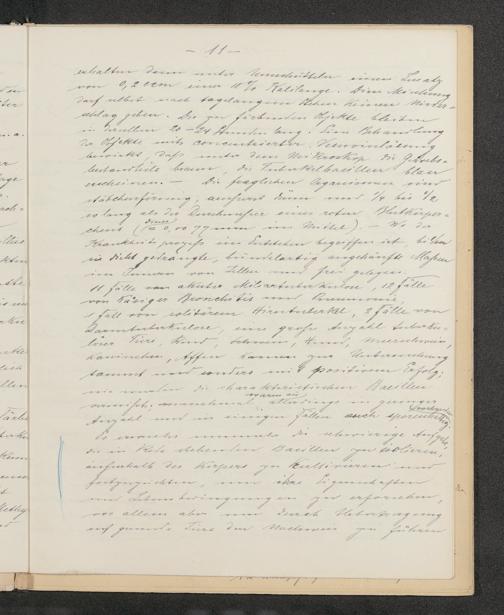 — 11 —
erhalten dann unter Umschütteln einen Zusatz
von 0,2 ccm einer 10% Kalilauge. Diese Mischung
darf selbst nach tagelangem Stehen keinen Nieder-
schlag geben. Die zu färbenden Objekte bleiben
in derselben 20–24 Stunden lang. Eine Behandlung
der Objekte mit concentrierter Vesuvinlösung
bewirkt, daß unter dem Mikroskop die Gewebs-
bestandteile braun, die Tuberkelbacillen blau
erscheinen. — Die fraglichen Organismen sind
stäbchenförmig, dünn und 1/4 bis 1/2
so lang als der Durchmesser eines roten Blutkörper-
chens (0,0077 mm im Mittel) — Wo der
Krankheitsprozeß im Entstehen begriffen ist, bilden
sie dicht gedrängte, bündelartig angehäufte Massen
im Innern von Zellen und frei gelegen.
11 Fälle von akuter Miliartuberkulose, 12 Fälle
von käsiger Bronchitis und Pneumonie,
1 Fall von solitärem Hirntuberkel, 2 Fälle von
Darmtuberkulose, eine große Anzahl tuberku-
löser Tiere, Rind, Schwein, Huhn, Meerschwein,
Kaninchen, Affen kamen zur Untersuchung
und mit positivem Erfolg;
nie wurden die charakteristischen Bacillen
vermisst, waren sie allerdings in geringer
Anzahl und in einigen Fällen auch
Es erwuchs nunmehr die schwierige Aufgabe,
die in Rede stehenden Bacillen zu isolieren,
außerhalb des Körpers zu kultivieren und
fortzuzüchten, um ihre Eigenschaften
und Lebensbedingungen zu erforschen,
vor allem aber um durch Uebertragung
auf gesunde Tiere den Nachweis zu führen